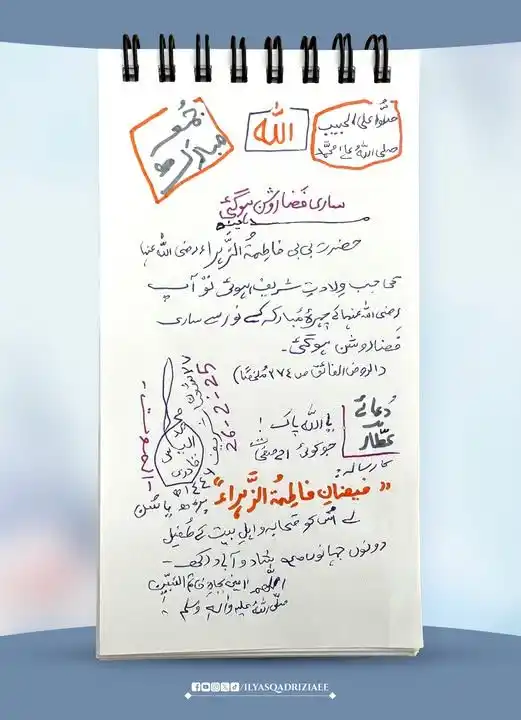 صلّوا علی الحبیب
صلی اللہ علیٰ محمّد
اللہ
جُمُعہ
مبارک
ساری فَضا روشن ہوگئی
حضرتِ بی بی فاطِمۃُ الزَّہراء رضی اللہ عنہا
کی جب وِلادتِ شریف ہوئی تو آپ
رضی اللہ عنہا کے چہرۂ مُبارکہ کے نور سے ساری
فَضا روشن ہوگئی۔
(الروض الفائق ص ۲۷۴ مُلخّصًا)
دُعائے
عطّار
یا اللہ پاک!
جو کوئی
کا رسالہ:
"فیضانِ فاطِمۃُ الزَّہراء"
پڑھ یا سُن
لے اُس کو صَحابہ و اہلِ بیت کے طُفیل
دونوں جہانوں میں شاد و آباد رکھ۔
اٰمین بجاہِ خاتم النبیّٖن
صلّی اللہُ علیہ واٰلہٖ وسلّم
محمد الیاس
قادری
26-2-25
/ILYASQADRIZIAEE